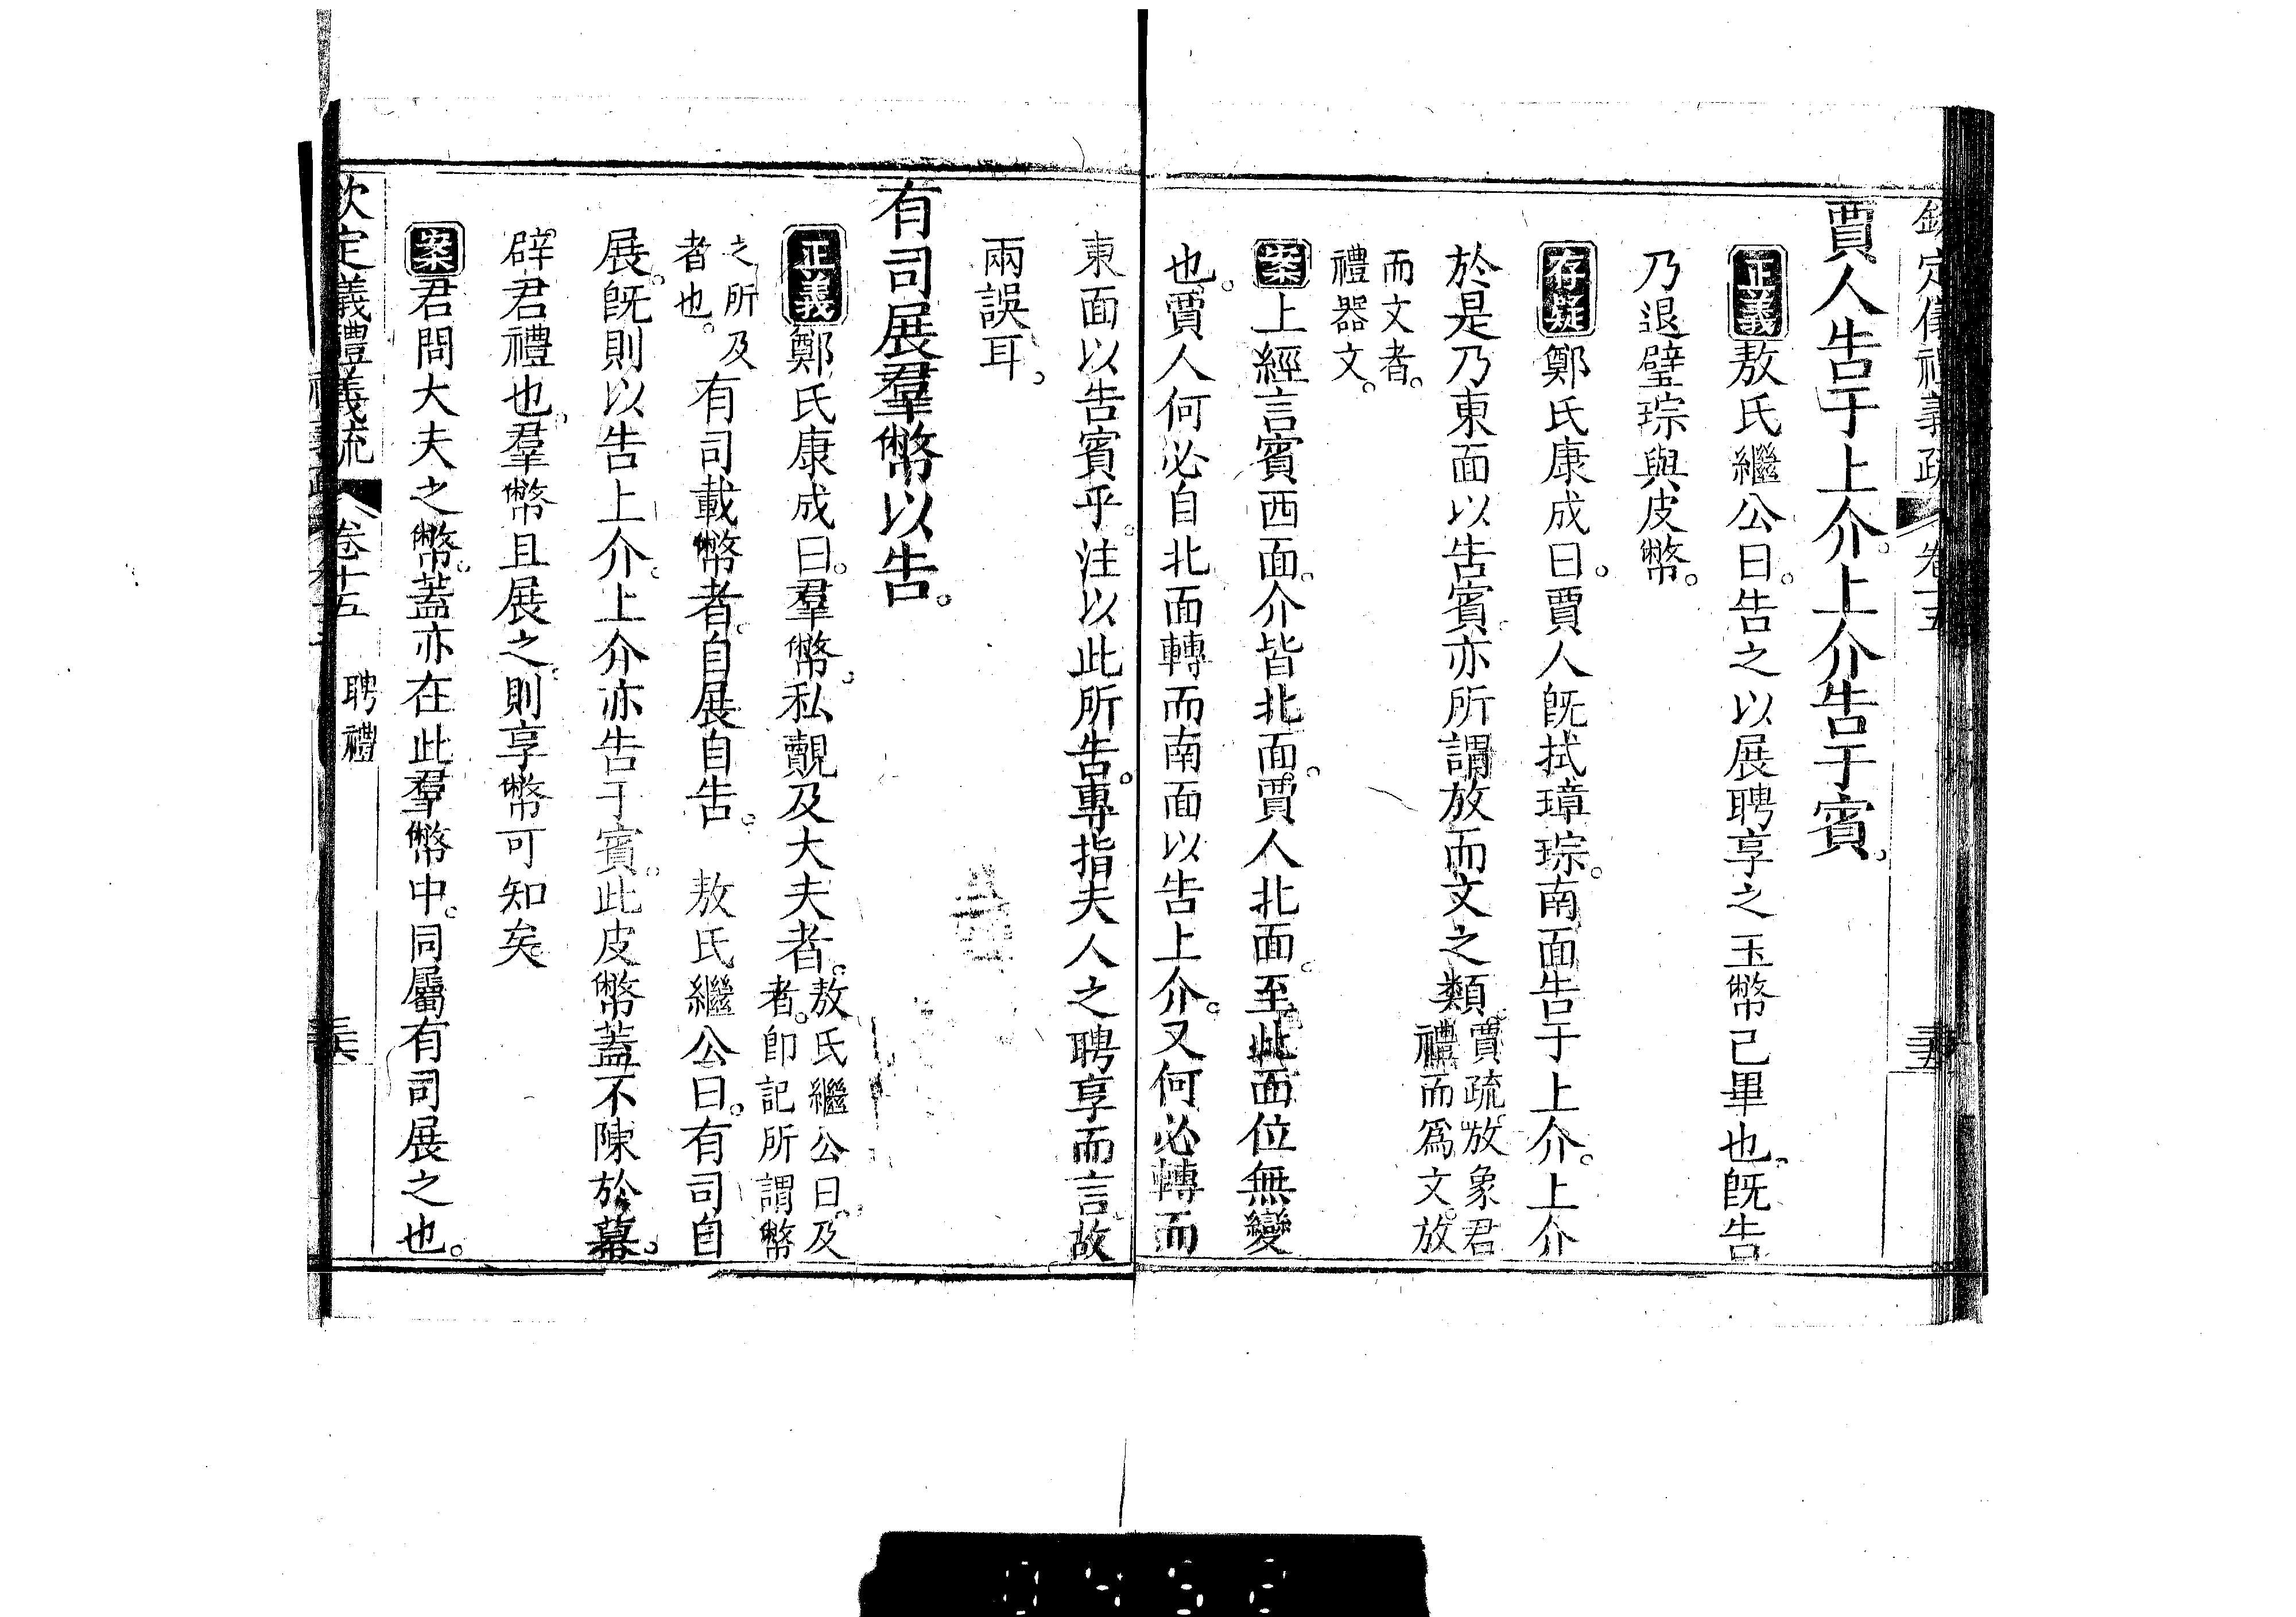 賈人告于上介。上介告于賓。
正義敖氏繼公曰。告之以展聘享之玉幣已畢也。旣告
乃退璧琮與皮幣。
存疑鄭氏康成曰。賈人旣拭璋琮。南面告于上介。上介
於是乃東面以告賓。亦所謂放而文之類。賈疏。放象君
禮而爲文。放
而文者。
禮器文。
案上經言賓西面。介皆北面。賈人北面。至此面位無變
也。賈人何必自北面轉而南面以告上介。又何必轉而
東面以告賓乎。注以此所告。專指夫人之聘享而言。故
兩誤耳。
有司展羣幣以告。
正義鄭氏康成曰。羣幣。私覿及大夫者。敖氏繼公曰。及
者。卽記所謂幣
之所及
者也。有司載幣者。自展自告。 敖氏繼公曰。有司自
展。旣則以告上介。上介亦告于賓。此皮幣蓋不陳於幕。
辟君禮也。羣幣且展之。則享幣可知矣。
案君問大夫之幣。蓋亦在此羣幣中。同屬有司展之也。
欽定儀禮義疏 卷十五 聘禮